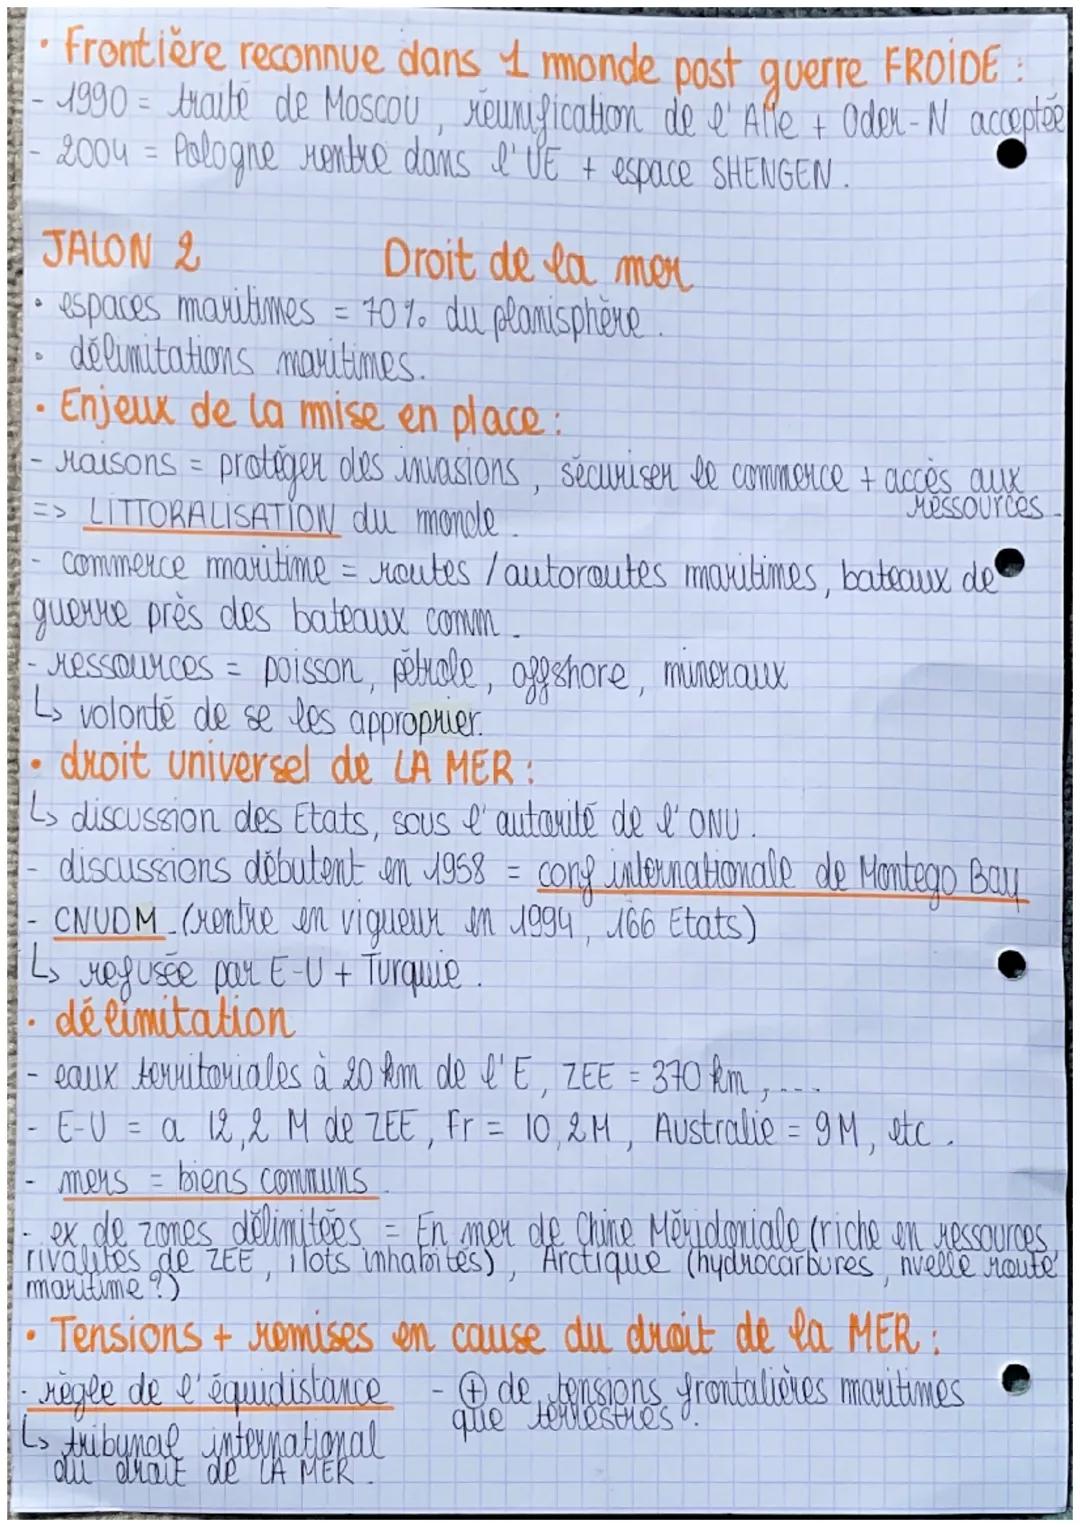 • Frontière reconnue dans 1 monde post guerre FROIDE :
- 1990 = traité de Moscou, réunification de l'Alle + Oder-N acceptée
- 2004 = Pologne rentre dans l'UE + espace SHENGEN.
JALON 2 Droit de la mer
• espaces maritimes = 70% du planisphère.
• délimitations maritimes.
• Enjeux de la mise en place :
- raisons = protéger des invasions, sécuriser le commerce + accès aux ressources.
=> LITTORALISATION du monde.
- commerce maritime = routes / autoroutes maritimes, bateaux de
guerre près des bateaux comm.
- ressources = poisson, pétrole, offshore, mineraux
↳ volonté de se les approprier.
• droit universel de LA MER :
↳ discussion des Etats, sous l'autorité de l'ONU.
- discussions débutent en 1958 = conf internationale de Montego Bay
- CNUDM (rentre en vigueur en 1994, 166 Etats)
↳ refusée par E-U + Turquie.
• délimitation
- eaux territoriales à 20 km de l'E, ZEE = 370 km, ....
- E-U = a 12,2 M de ZEE, Fr = 10,2M, Australie = 9M, etc.
- mers = biens communs.
- ex de zones délimitées = En mer de Chine Méridoniale (riche en ressources,
rivalités de ZEE, ilots inhabités), Arctique (hydrocarbures, nvelle route
maritime ?)
• Tensions + remises en cause du droit de la MER :
- règle de l'équidistance
↳ tribunal international
du droit de LA MER.
- ⊕ de tensions frontalières maritimes
que terrestres.